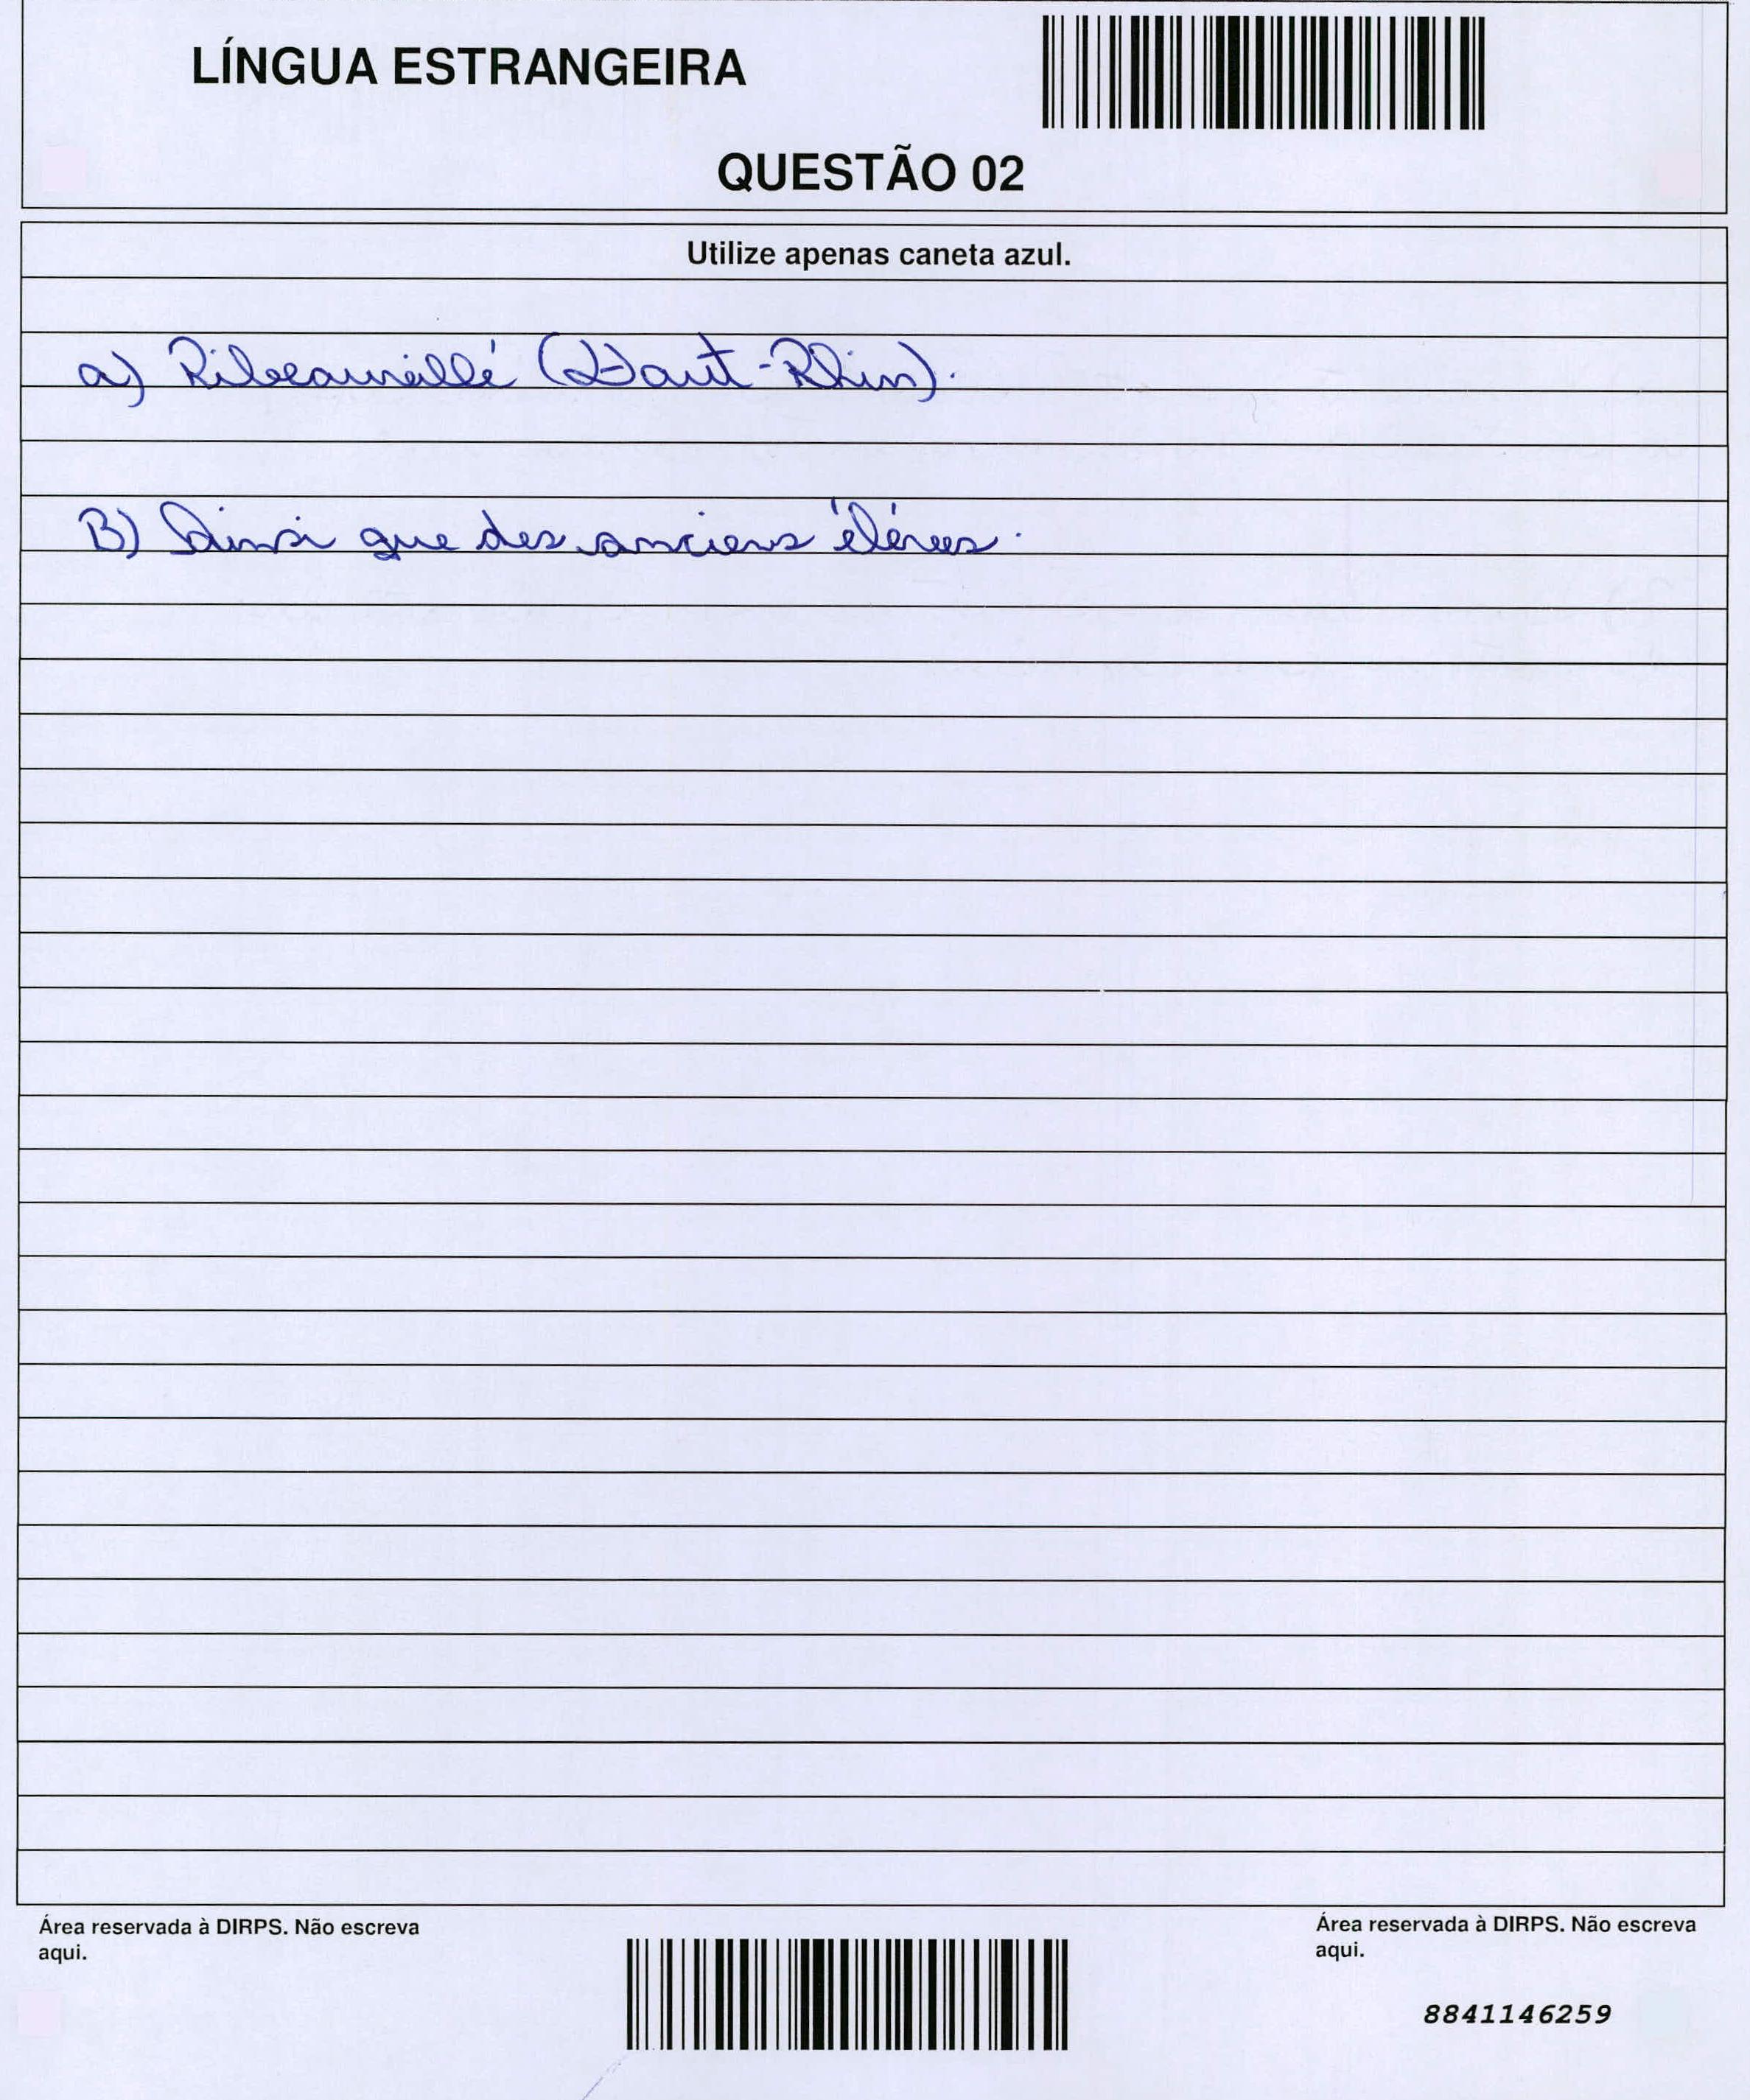 LÍNGUA ESTRANGEIRA
QUESTÃO 02
Utilize apenas caneta azul.
a) Ribeauvillé (Haut-Rhin).
B) Ainsi que des anciens élèves.
Área reservada à DIRPS. Não escreva
aqui.
Área reservada à DIRPS. Não escreva
aqui.
8841146259